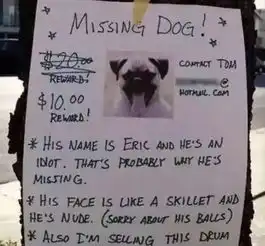 MISSING DOG!
$20.00
REWARD!
$10.00
REWARD!
CONTACT TOM
@
HOTMAIL.COM
* HIS NAME IS ERIC AND HE'S AN
IDIOT. THAT'S PROBABLY WHY HE'S
MISSING.
* HIS FACE IS LIKE A SKILLET AND
HE'S NUDE. (SORRY ABOUT HIS BALLS)
* ALSO I'M SELLING THIS DRUM